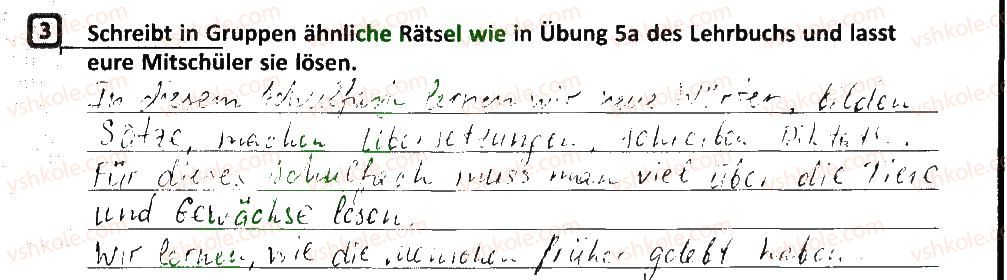 3 Schreibt in Gruppen ähnliche Rätsel wie in Übung 5a des Lehrbuchs und lasst
eure Mitschüler sie lösen.
In diesem Schulfach lernen wir neue Wörter, bilden
Sätze, machen Übersetzungen, schreiben Diktate.
Für dieses Schulfach muss man viel über die Tiere
und Gewächse lesen.
Wir lernen, wie die Menschen früher gelebt haben.